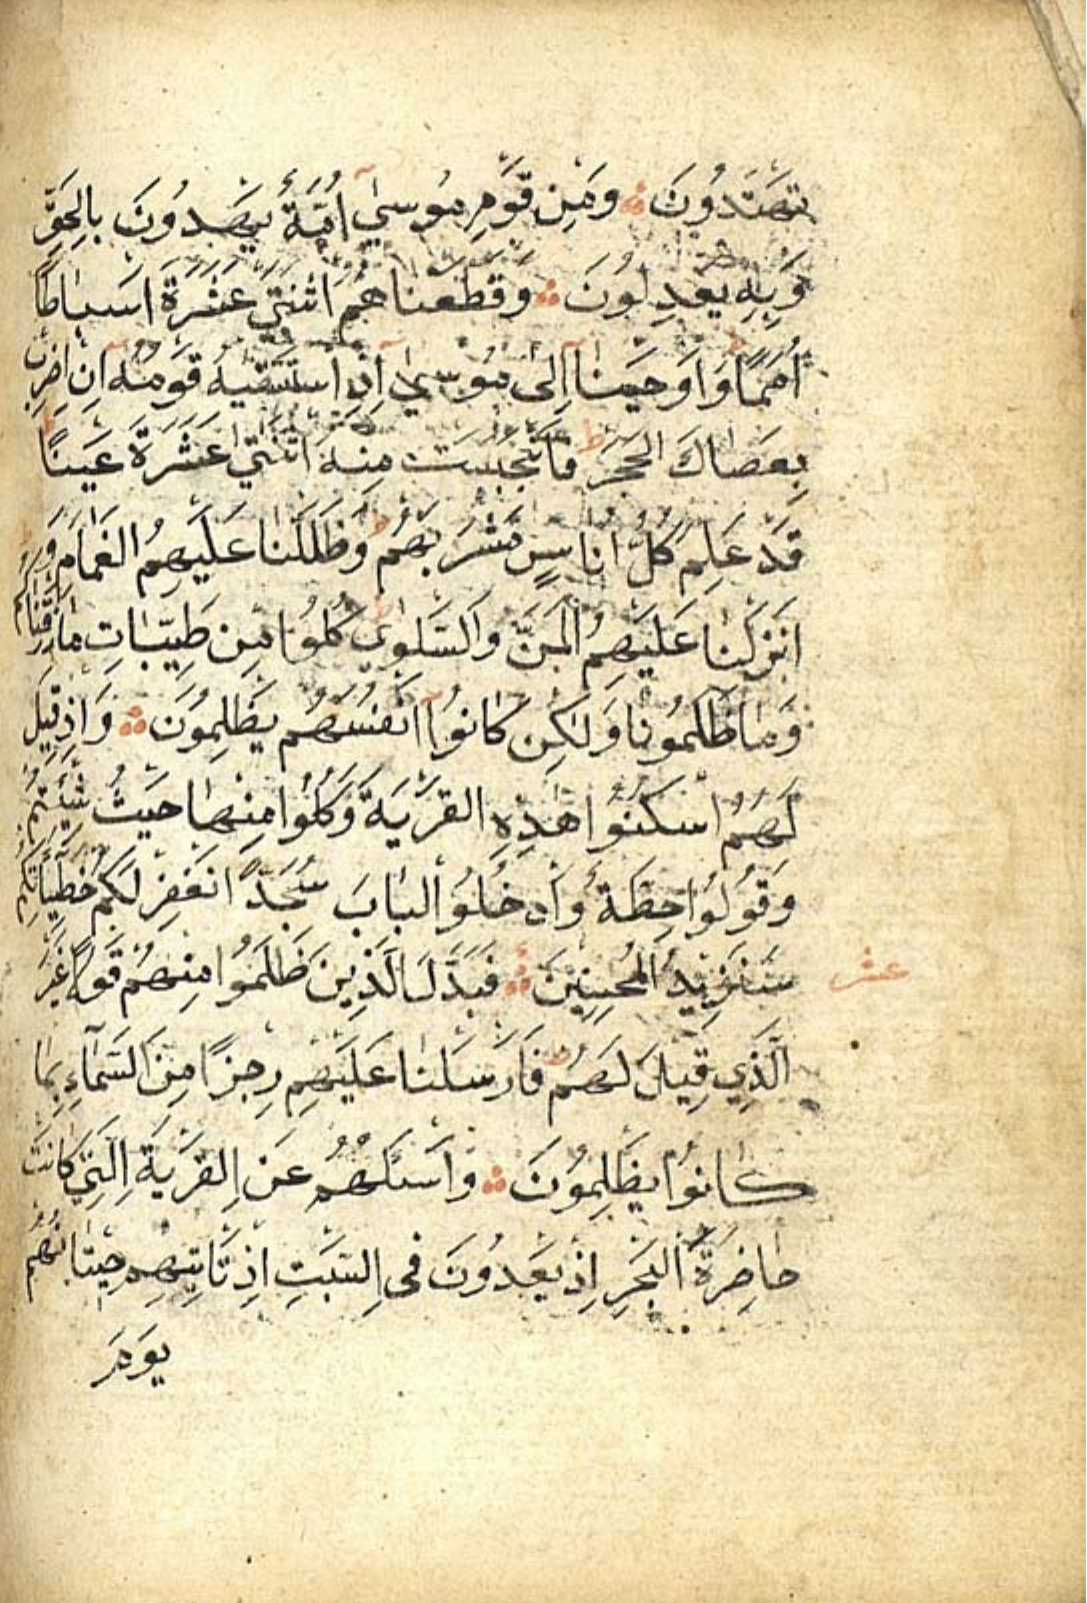 تَهْتَدُونَ وَمِنْ قَوْمِ مُوسٰى اُمَّةٌ يَهْدُونَ بِالْحَقِّ
وَبِهِ يَعْدِلُونَ وَقَطَّعْنَاهُمُ اثْنَتَيْ عَشْرَةَ اَسْبَاطًا
اُمَمًا وَاَوْحَيْنَا اِلٰى مُوسٰى اِذِ اسْتَسْقٰيهُ قَوْمُهُ اَنِ اضْرِبْ
بِعَصَاكَ الْحَجَرَ ط فَانْبَجَسَتْ مِنْهُ اثْنَتَيْ عَشْرَةَ عَيْنًا ط
قَدْ عَلِمَ كُلُّ اُنَاسٍ مَشْرَبَهُمْ ط وَظَلَّلْنَا عَلَيْهِمُ الْغَمَامَ وَ
اَنْزَلْنَا عَلَيْهِمُ الْمَنَّ وَالسَّلْوٰى ط كُلُوا مِنْ طَيِّبَاتِ مَا رَزَقْنَاكُمْ
وَمَا ظَلَمُونَا وَلٰكِنْ كَانُوا اَنْفُسَهُمْ يَظْلِمُونَ وَاِذْ قِيلَ
لَهُمُ اسْكُنُوا هٰذِهِ الْقَرْيَةَ وَكُلُوا مِنْهَا حَيْثُ شِئْتُمْ
وَقُولُوا حِطَّةٌ وَادْخُلُوا الْبَابَ سُجَّدًا نَغْفِرْ لَكُمْ خَطِيئَاتِكُمْ
سَنَزِيدُ الْمُحْسِنِينَ فَبَدَّلَ الَّذِينَ ظَلَمُوا مِنْهُمْ قَوْلًا غَيْرَ
عشر
الَّذِي قِيلَ لَهُمْ ط فَاَرْسَلْنَا عَلَيْهِمْ رِجْزًا مِنَ السَّمَاءِ بِمَا
كَانُوا يَظْلِمُونَ وَاسْئَلْهُمْ عَنِ الْقَرْيَةِ الَّتِي كَانَتْ
حَاضِرَةَ الْبَحْرِ اِذْ يَعْدُونَ فِي السَّبْتِ اِذْ تَأْتِيهِمْ حِيتَانُهُمْ
يَوْمَ